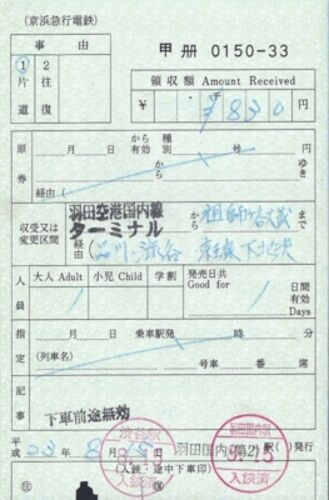 (京浜急行電鉄)
事由 甲冊 0150-33
① 2
片道 往復
領収額 Amount Received
¥ 千 ¥830 円
原券 月 日 から有効 種別 号 円 ゆき
経由(
収受又は変更区間 羽田空港国内線ターミナル から 祖師谷大蔵 まで
経由( 品川、渋谷 下北沢
人員 大人 Adult 小児 Child 学割 発売日共 Good for
1 1 日間有効 Days
指定 月 日 乗車駅発 時 分
(列車名) 号車 番 席
記事
下車前途無効
平成 23年 8月15日 羽田国内(第2)駅( )発行
渋谷駅 入鋏済
羽田国内駅 入鋏済
(入鋏・途中下車印)